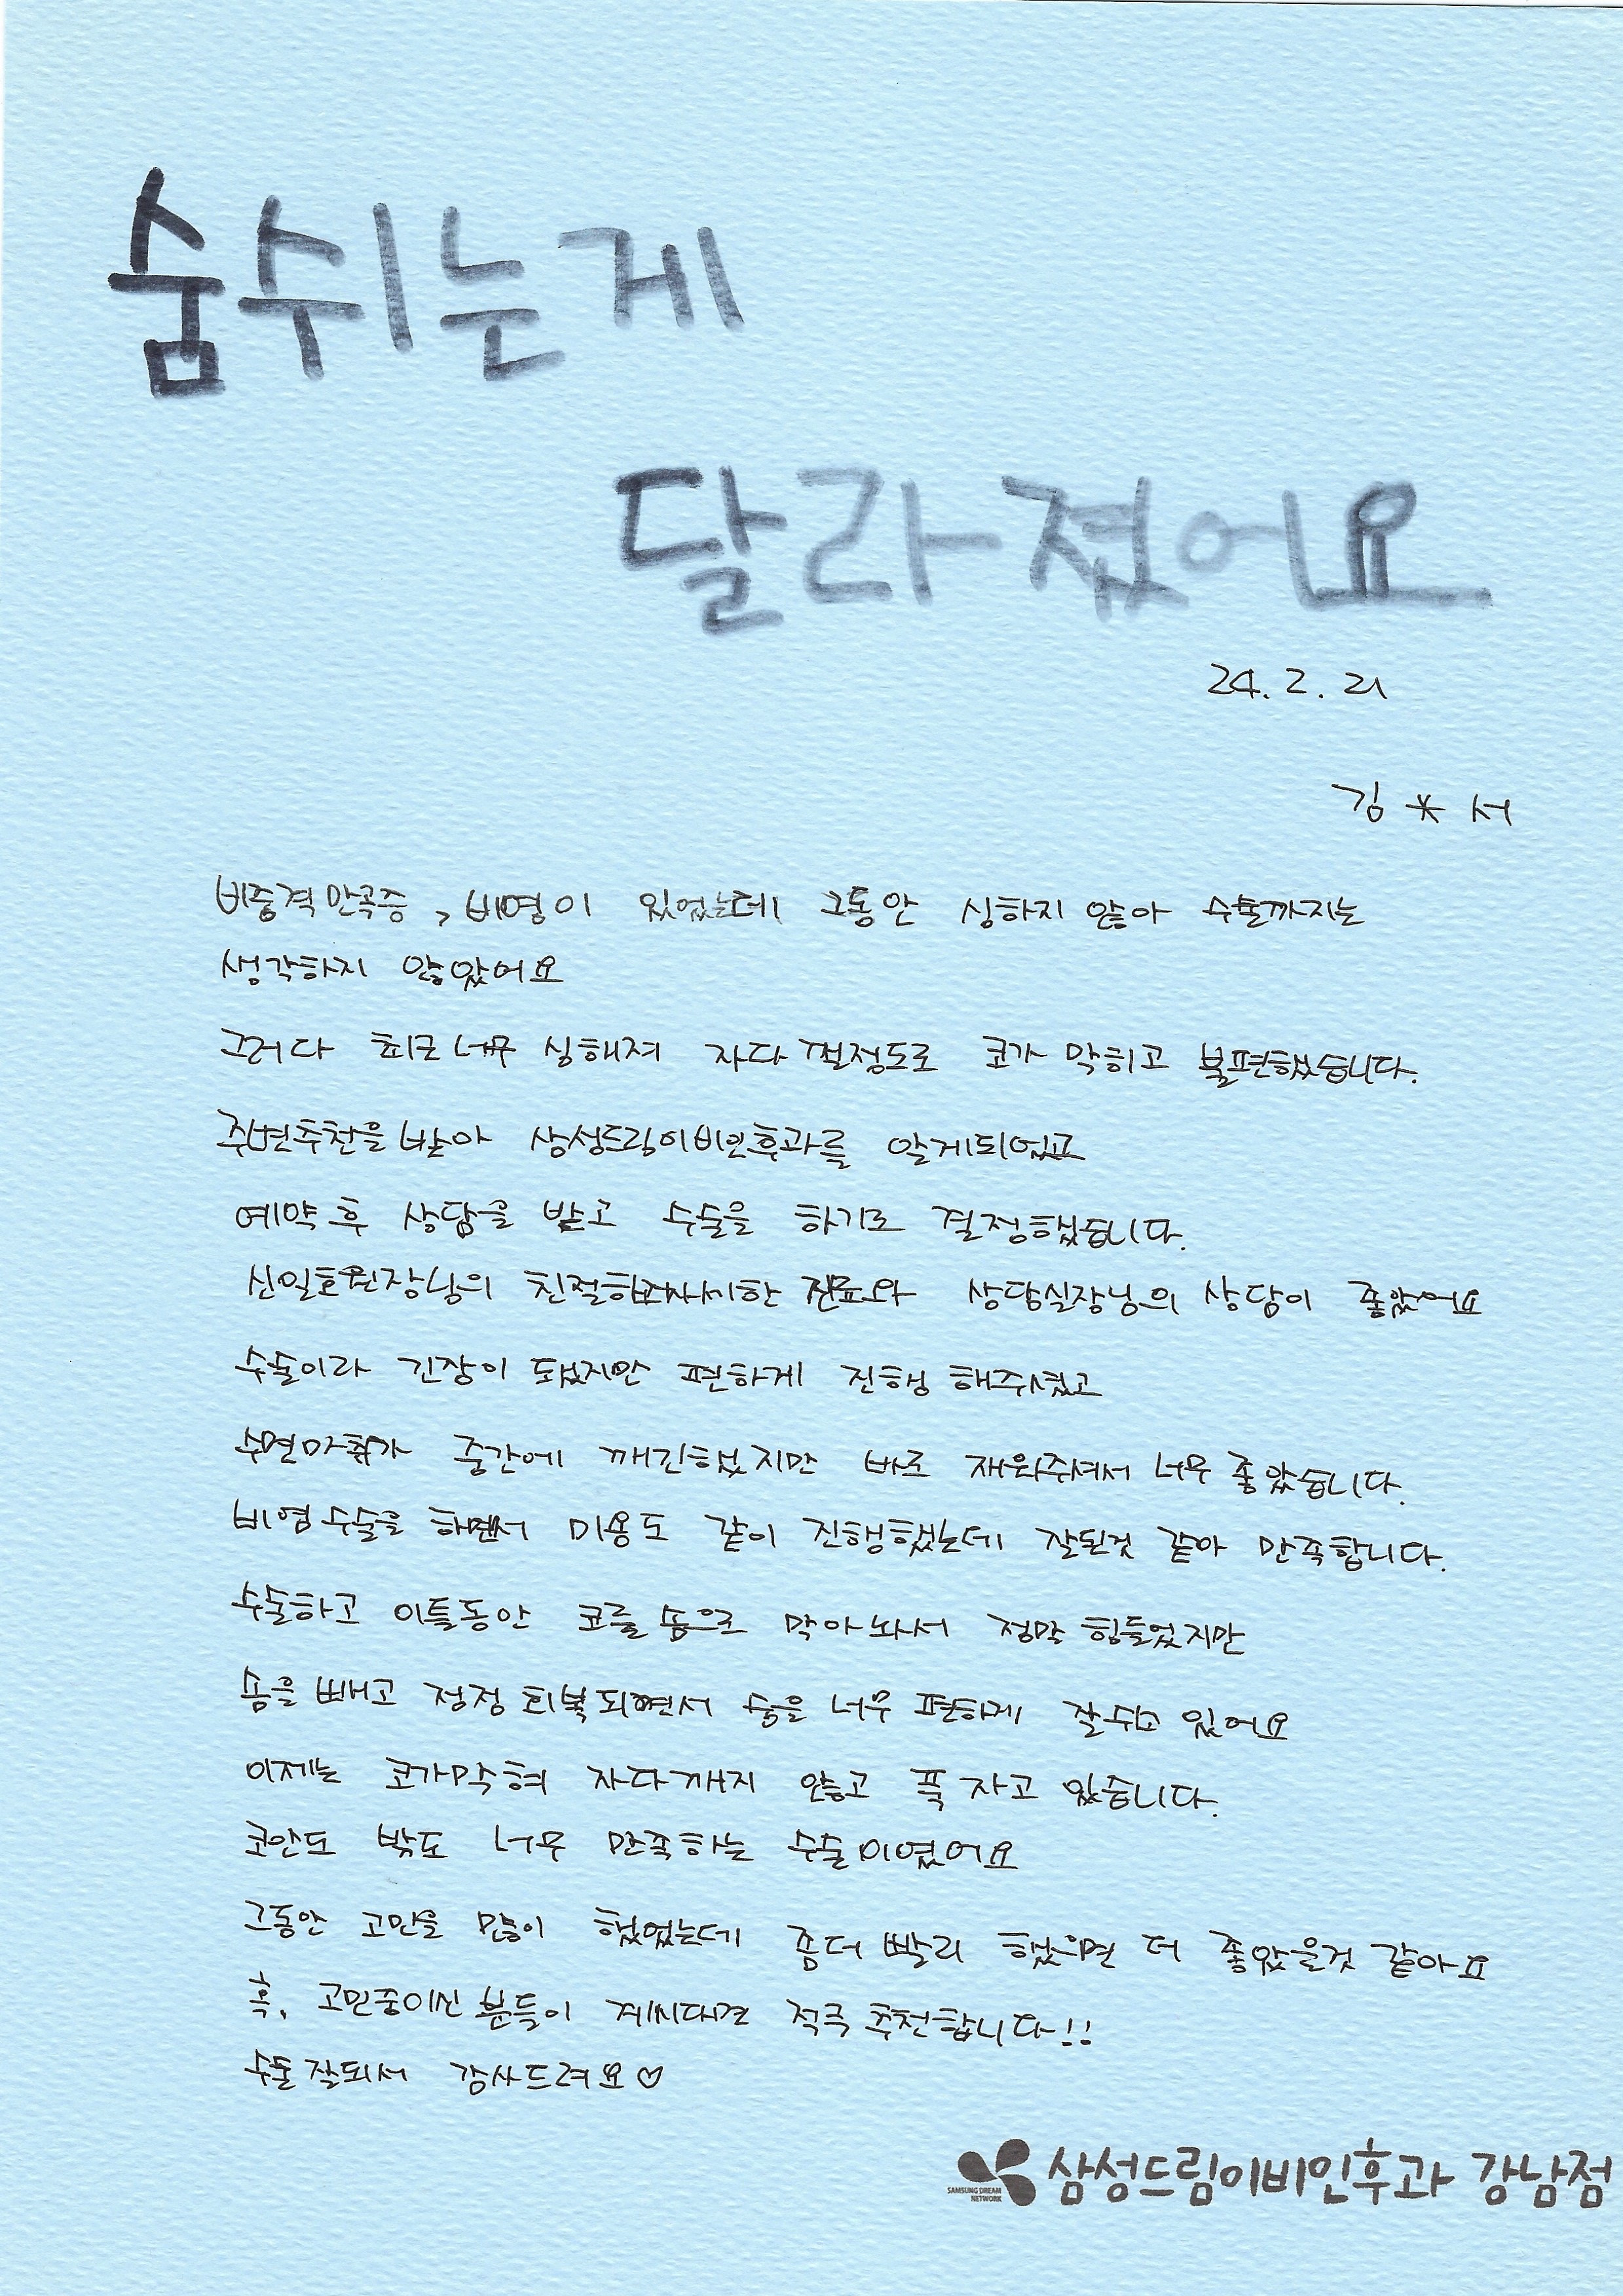 숨쉬는게
달라졌어요
24. 2. 21
김 * 서
비중격만곡증, 비염이 있었는데 그동안 심하지 않아 수술까지는
생각하지 않았어요
그러다 최근너무 심해져 자다 깰정도로 코가 막히고 불편했습니다.
주변추천을 받아 삼성드림이비인후과를 알게되었고
예약 후 상담을 받고 수술을 하기로 결정했습니다.
신일호원장님의 친절하고자세한 진료와 상담실장님의 상담이 좋았어요
수술이라 긴장이 됐지만 편하게 진행 해주셨고
수면마취가 중간에 깨긴했지만 바로 재워주셔서 너무 좋았습니다.
비염수술을 하면서 미용도 같이 진행했는데 잘된것 같아 만족합니다.
수술하고 이틀동안 코를 솜으로 막아놔서 정말 힘들었지만
솜을 빼고 점점 회복되면서 숨을 너무 편하게 잘쉬고 있어요
이제는 코가막혀 자다깨지 않고 푹 자고 있습니다.
코안도 밖도 너무 만족하는 수술이였어요
그동안 고민을 많이 했었는데 좀더 빨리 했으면 더 좋았을것 같아요
혹, 고민중이신 분들이 계시다면 적극 추천합니다!!
수술 잘되서 감사드려요♡
SAMSUNG DREAM
NETWORK
삼성드림이비인후과 강남점